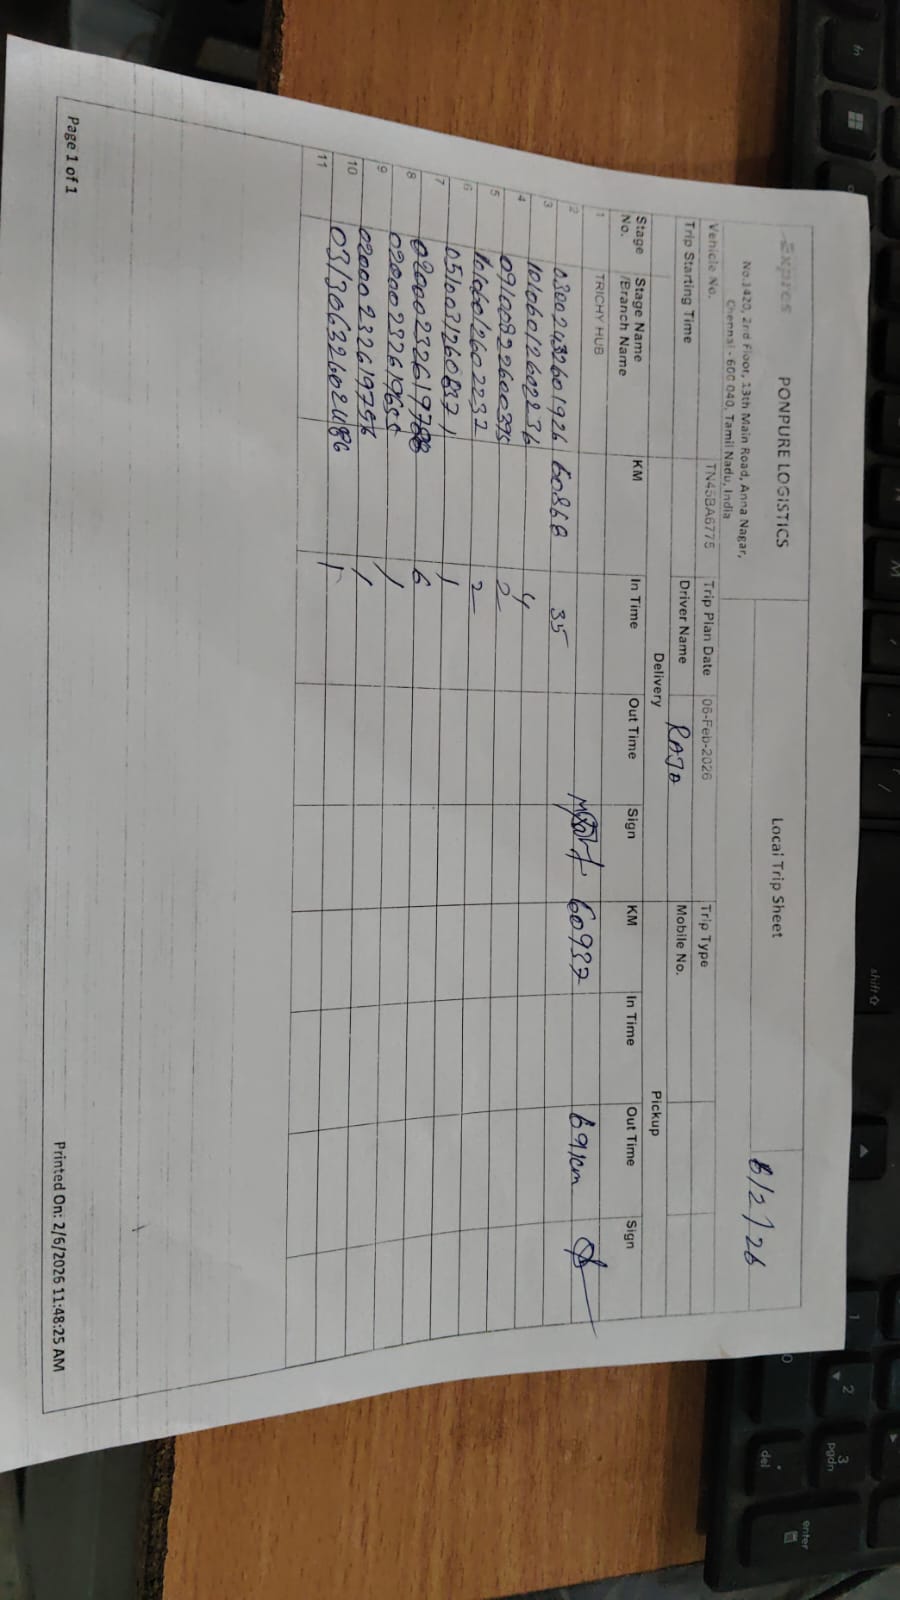 Expres
PONPURE LOGISTICS
No.1420, 2nd Floor, 13th Main Road, Anna Nagar,
Chennai - 600 040, Tamil Nadu, India
Local Trip Sheet
6/2/26
Vehicle No. TN45BA6775 Trip Plan Date 06-Feb-2026 Trip Type
Trip Starting Time Driver Name RAJA Mobile No.
Delivery Pickup
Stage No. Stage Name /Branch Name KM In Time Out Time Sign KM In Time Out Time Sign
1 TRICHY HUB
2 03002432601926 60868 35 60937 69 km
3 10106012602236 4
4 09100822600395 2
5 10106012602232 2
6 0510031260837 1
7 0200023261978 6
8 0200023261965 1
9 0200023261975 1
10 0313063260248 1
11
Page 1 of 1
Printed On: 2/6/2026 11:48:25 AM